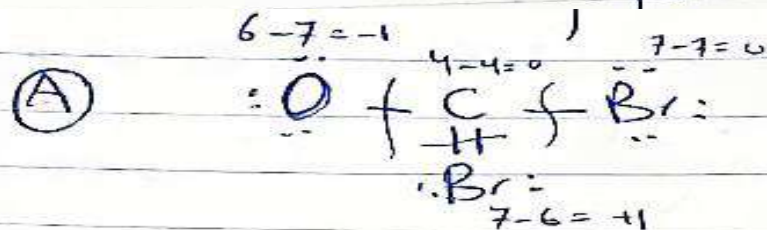 6-7=-1 4-4=0 7-7=0
A :O C Br:
Br:
7-6=+1